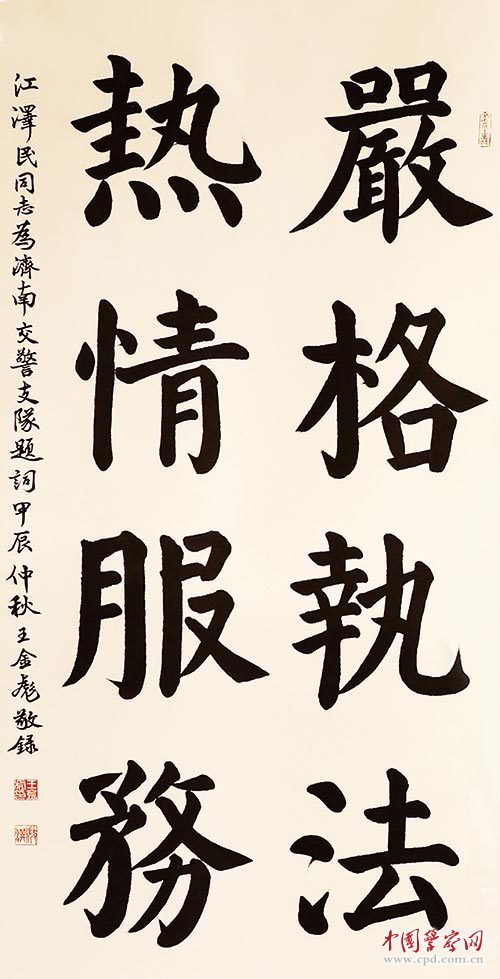 嚴格執法
熱情服務
江澤民同志為濟南交警支隊題詞甲辰仲秋王金彪敬録
中国警察网
www.cpd.com.cn